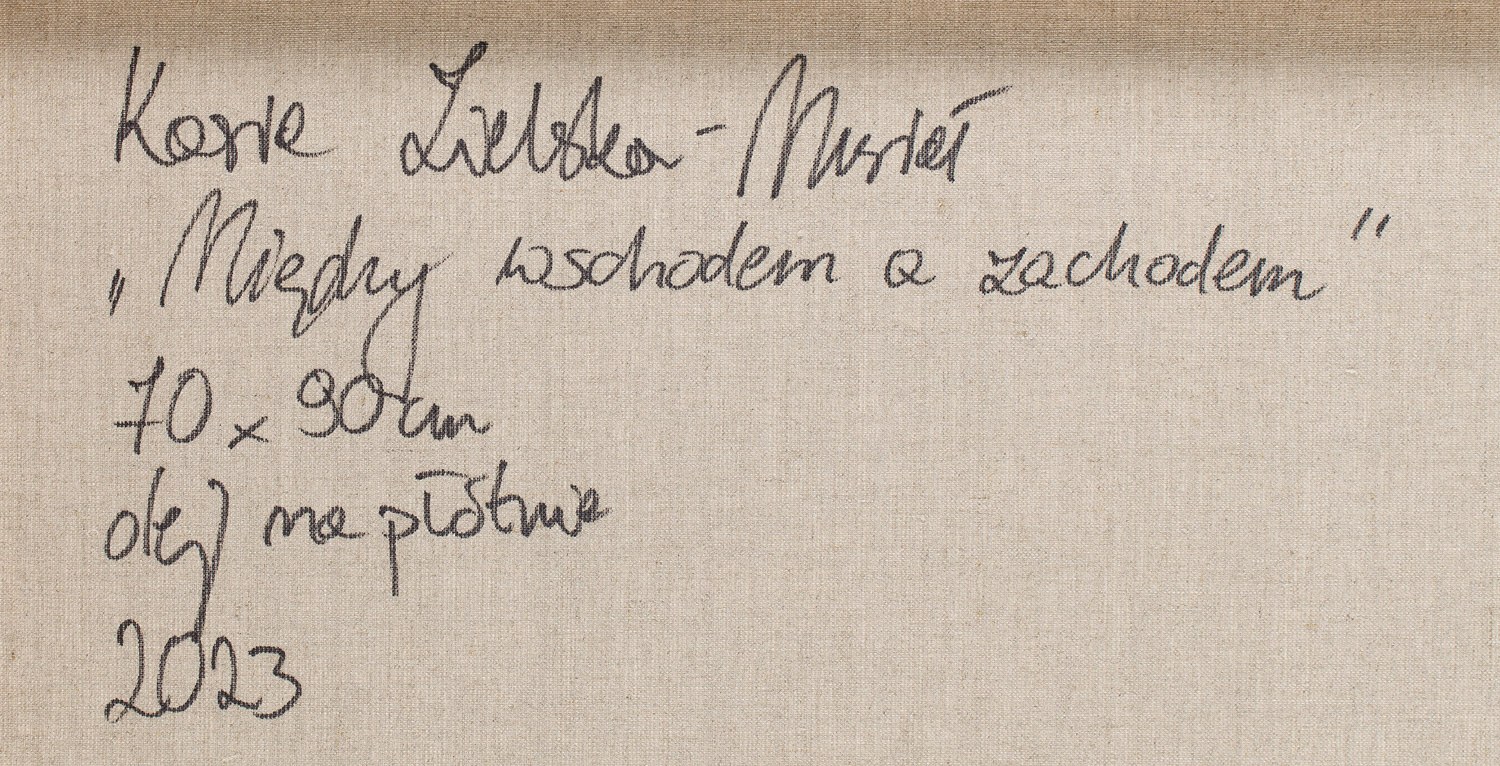 Kasia Zielska-Musiał
„Między wschodem a zachodem”
70 x 90 cm
olej na płótnie
2023